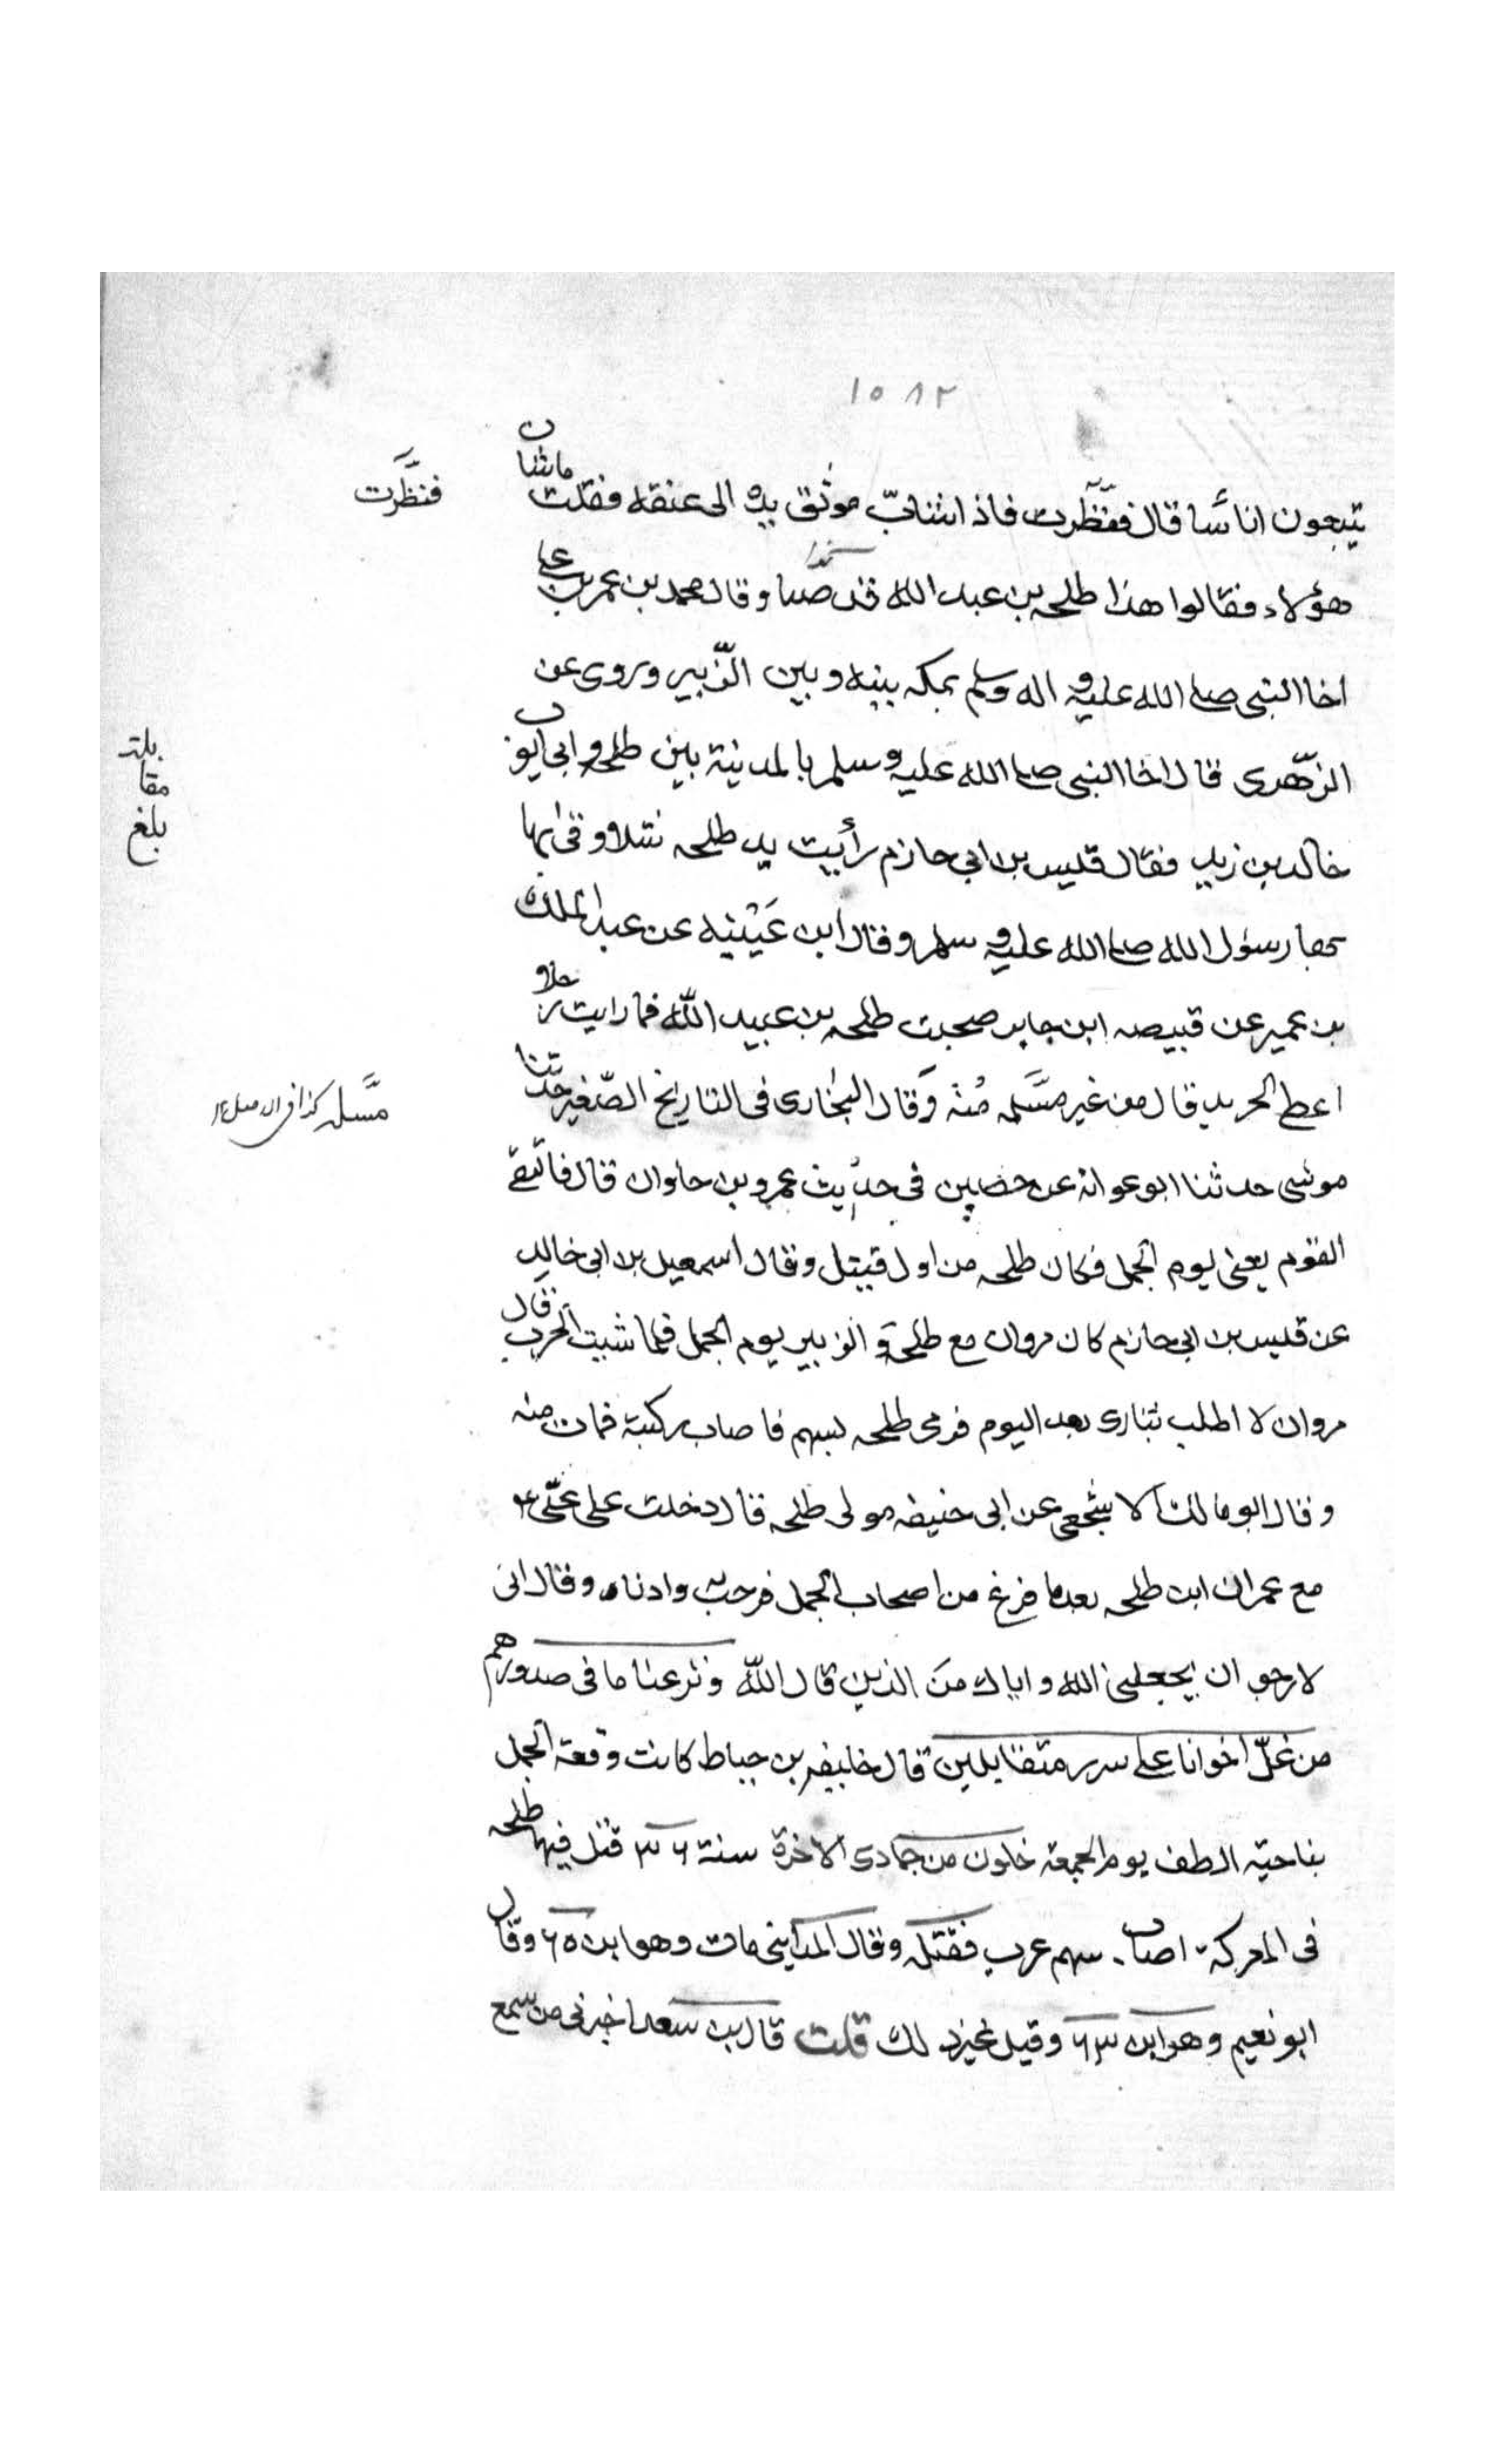 ١٥٨٢
يتبعون اناسًا قال فنظّرت فاذا شاب موثق يده الى عنقه فقلت ماشان
فنظّرت
هؤلاء فقالوا هذا طلحه بن عبد الله قد صبا وقال محمد بن عمر بن على
اخا النبى صلى الله عليه و اله وسلم بمكه بينه وبين الزّبير وروى عن
الزّهرى قال اخا النبى صلى الله عليه وسلم بالمدينة بين طلحه وابى ايوب
خالد بن زيد فقال قيس بن ابى حازم رأيت يد طلحه شلا وقى بها
بها رسول الله صلى الله عليه و سلم وقال ابن عَيْنيه عن عبد الملك
بلغ
مقا
بلة
بن عمير عن قبيصه ابن جابر صحبت طلحه بن عبيد اللّه فما رايت رجلا
اعطى الحريد قال من غير مسَّله مُنه وَقال البخارى فى التاريخ الصّغير حدّثنا
مسَّله كذا فى الاصل ١٢
موسى حدثنا ابو عوانه عن حصين فى حديث عمرو بن جاوان قال فالتقى
القوم يعنى يوم الجمل فكان طلحه من اول قتيل وقال اسمعيل بن ابى خالد
عن قيس بن ابى حازم كان مروان مع طلحة و الزبير يوم الجمل فلما شبت الحرب قال
مروان لا اطلب بثارى بعد اليوم فرمى طلحه بسهم فاصاب ركبتة فمات منه
وقال ابو مالك الاشجعى عن ابى حنيفه مولى طلحه قال دخلت على علّى ع
مع عمران ابن طلحه بعد ما فرغ من اصحاب الجمل فرحب به وادناه وقال انى
لارجو ان يجعلنى الله و اياك من الذين قال اللّه ونزعنا ما فى صدورهم
من غلّ اخوانا على سرر متقابلين قال خليفه بن خياط كانت وقعة الجمل
بناحية الطف يوم الجمعه خلون من جمادى الاخرة سنة ٣٦ قتل فيها طلحه
فى المعركة اصاب سهم غرب فقتله وقال المداينى مات وهو ابن ٦٥ وقال
ابو نعيم وهو ابن ٦٣ وقيل غير ذلك قلت قال ابن سعد اخبرنى من سمع